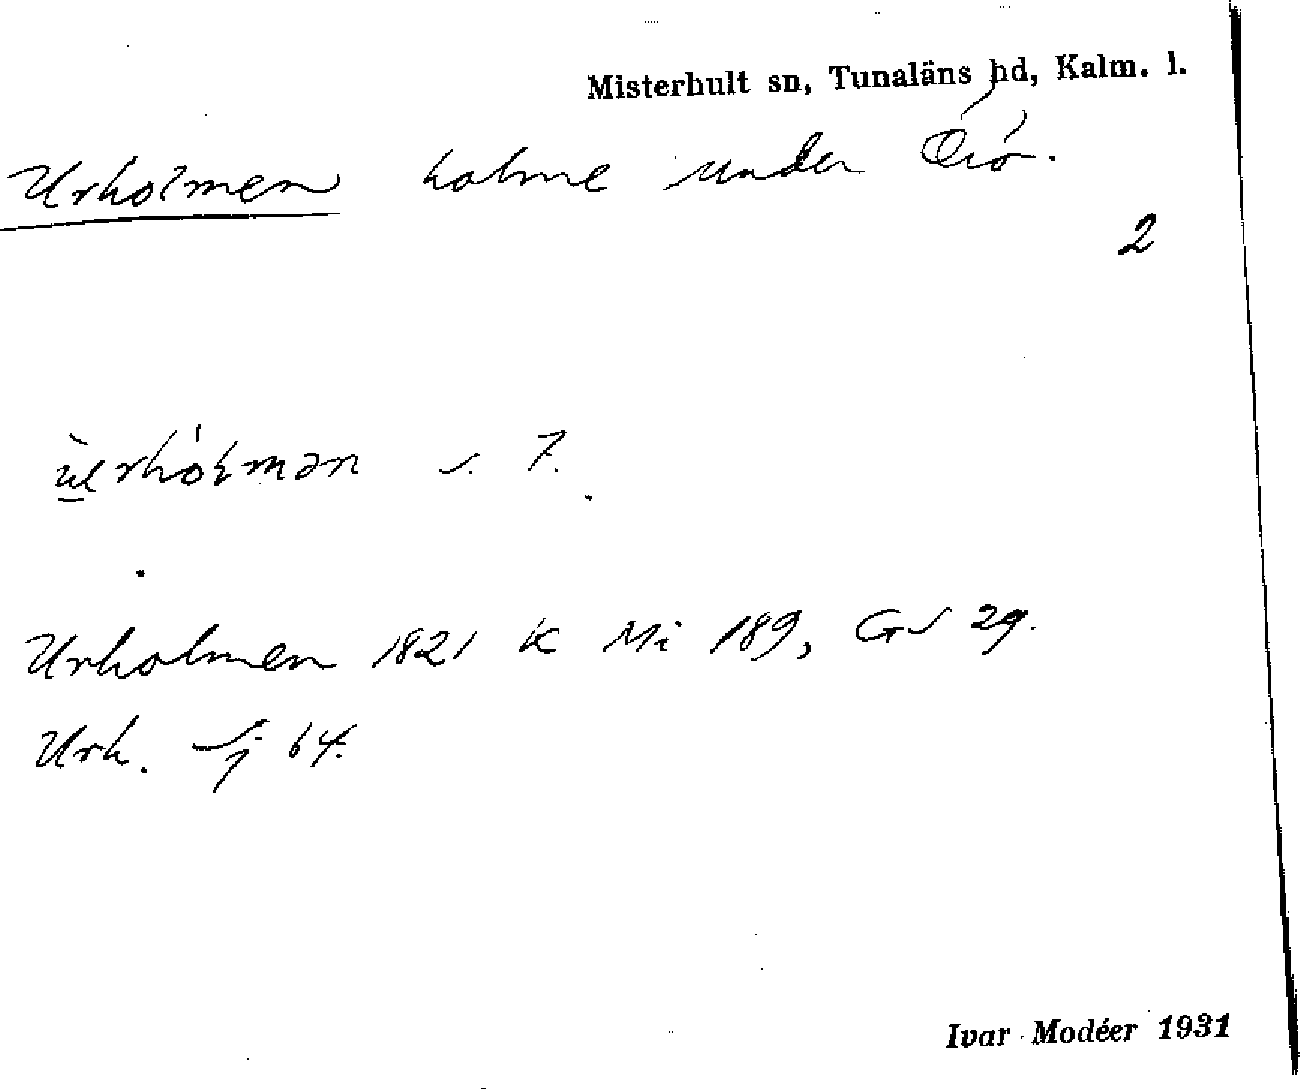 Misterhult sn, Tunaläns hd, Kalm. l.
Urholmen holme under Örö.
2
s. 7.
Urholmen 1821 K Mi 189, Gs 29.
Urh. Sj 64.
Ivar Modéer 1931